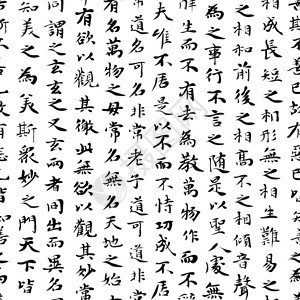 相成長短之相形無之相生難易之
之相和前後之相傾音聲
為之事行不言之隨是以聖人處無
生而不有去為萬物作而不
夫唯不居是以不而不恃功成不居
道名可名非常老子道可道非常
名萬物之母常名無名天地之始
有欲以觀其徼此無欲以觀其妙常
同謂之玄玄之又玄而者同出而異名
之為美斯眾妙之門天下皆